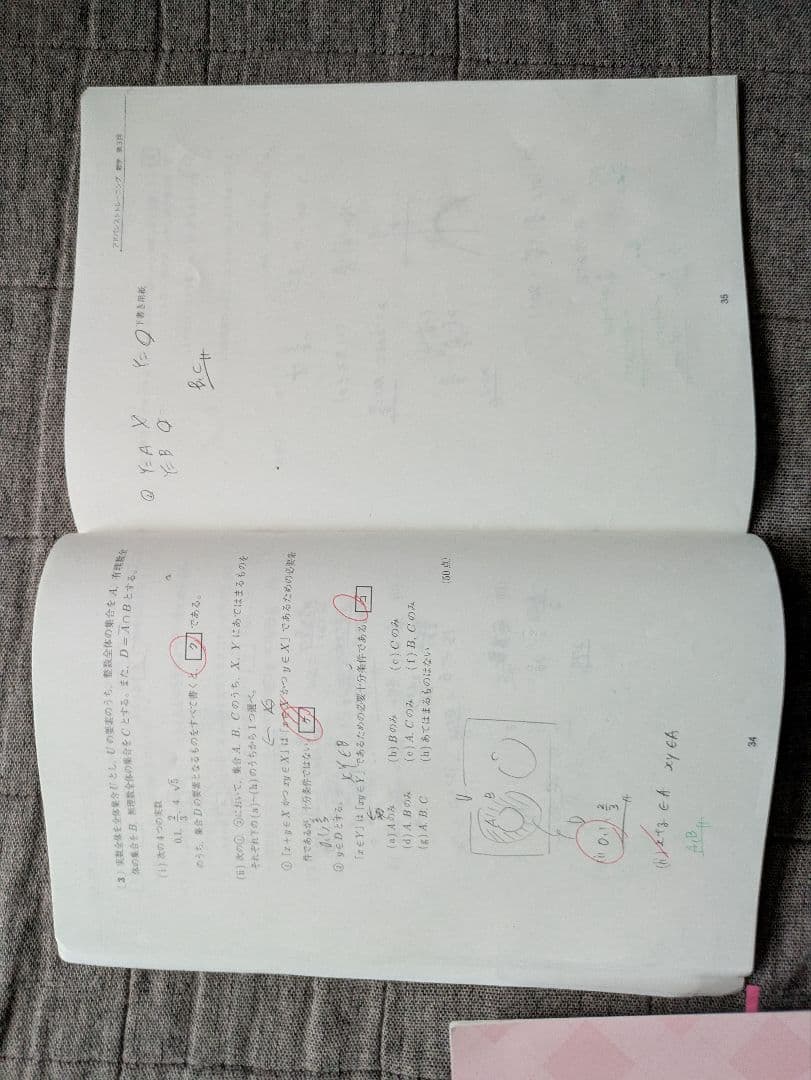 (3) 実数全体を全体集合Uとし，Uの要素のうち，整数全体の集合をA，有理数全
体の集合をB，無理数全体の集合をCとする。また，D＝A̅∩Bとする。
(i) 次の4つの実数
0.1, 2/3, 4, √5
のうち，集合Dの要素となるものをすべて書くと, ク である。
(ii) 次の①, ②において，集合A, B, Cのうち，X, Yにあてはまるものを
それぞれ下の(a)～(h)のうちから1つ選べ。
① 「x＋y∈X かつ xy∈X」は「x∈X かつ y∈X」であるための必要条
件であるが，十分条件ではない
② y∈D とする。
xy∈B
「x∈Y」は「xy∈Y」であるための必要十分条件である
(a) Aのみ (b) Bのみ (c) Cのみ
(d) A, Bのみ (e) A, Cのみ (f) B, Cのみ
(g) A, B, C (h) あてはまるものはない
(50点)
U
A B
C
D
(i) 0.1, 2/3
x+y∈A xy∈A
A,B
34
アドバンストトレーニング 数学 第3回
下書き用紙
② Y=A X Y=
Y=B
B,C
35